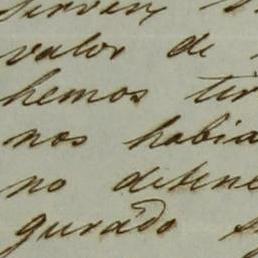 serven,
valor de
hemos tir
nos habia
no detene
gurado